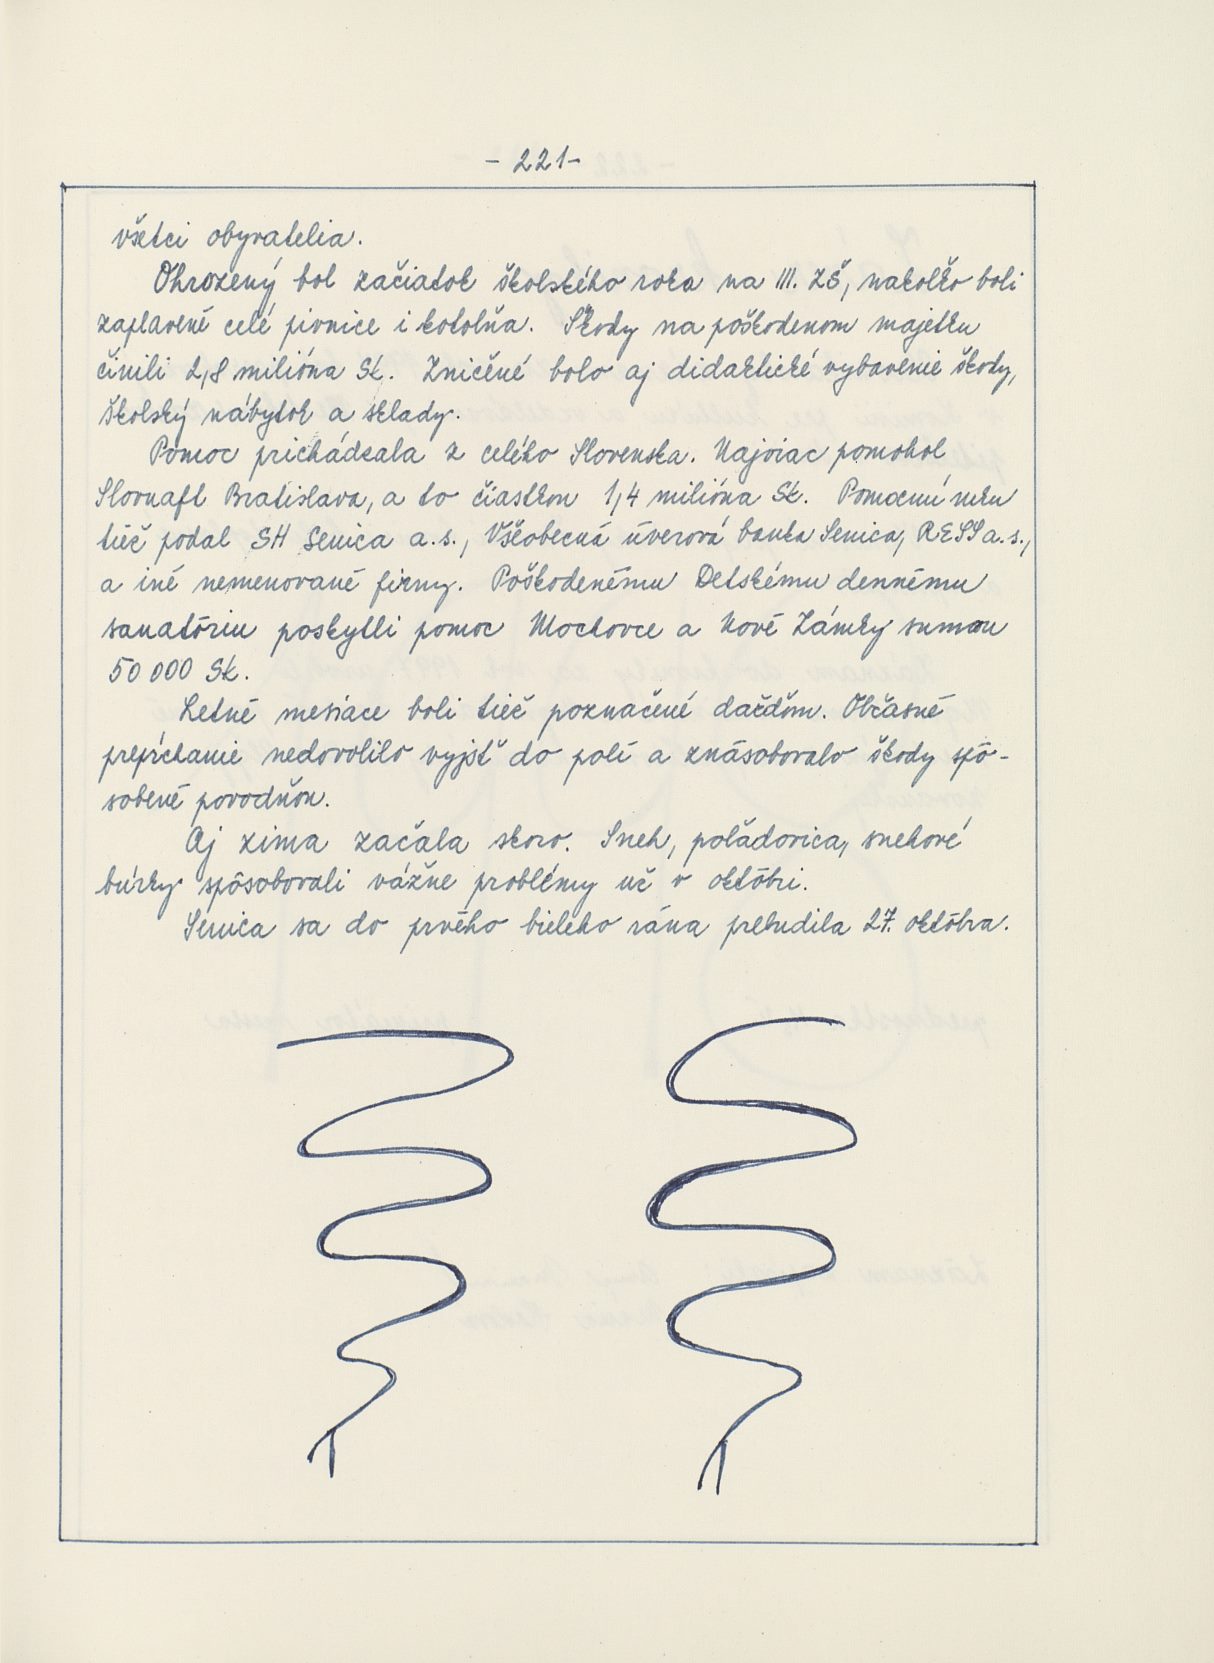 - 221-
všetci obyvatelia.
Ohrozený bol začiatok školského roka na III. ZŠ, nakoľko boli
zaplavené celé pivnice i kotolňa. Škody na poškodenom majetku
činili 2,8 milióna Sk. Zničené bolo aj didaktické vybavenie školy,
školský nábytok a sklady.
Pomoc prichádzala z celého Slovenska. Najviac pomohol
Slovnaft Bratislava, a to čiastkou 1,4 milióna Sk. Pomocnú ruku
tiež podal SH Senica a.s., Všeobecná úverová banka Senica, RESS a.s.,
a iné nemenované firmy. Poškodenému Detskému dennému
sanatóriu poskytli pomoc Mochovce a Nové Zámky sumou
50 000 Sk.
Letné mesiace boli tiež poznačené dažďom. Občasné
prepŕchanie nedovolilo vyjsť do polí a znásobovalo škody spô-
sobené povodňou.
Aj zima začala skoro. Sneh, poľadovica, snehové
búrky spôsobovali vážne problémy už v októbri.
Senica sa do prvého bieleho rána prebudila 27. októbra.